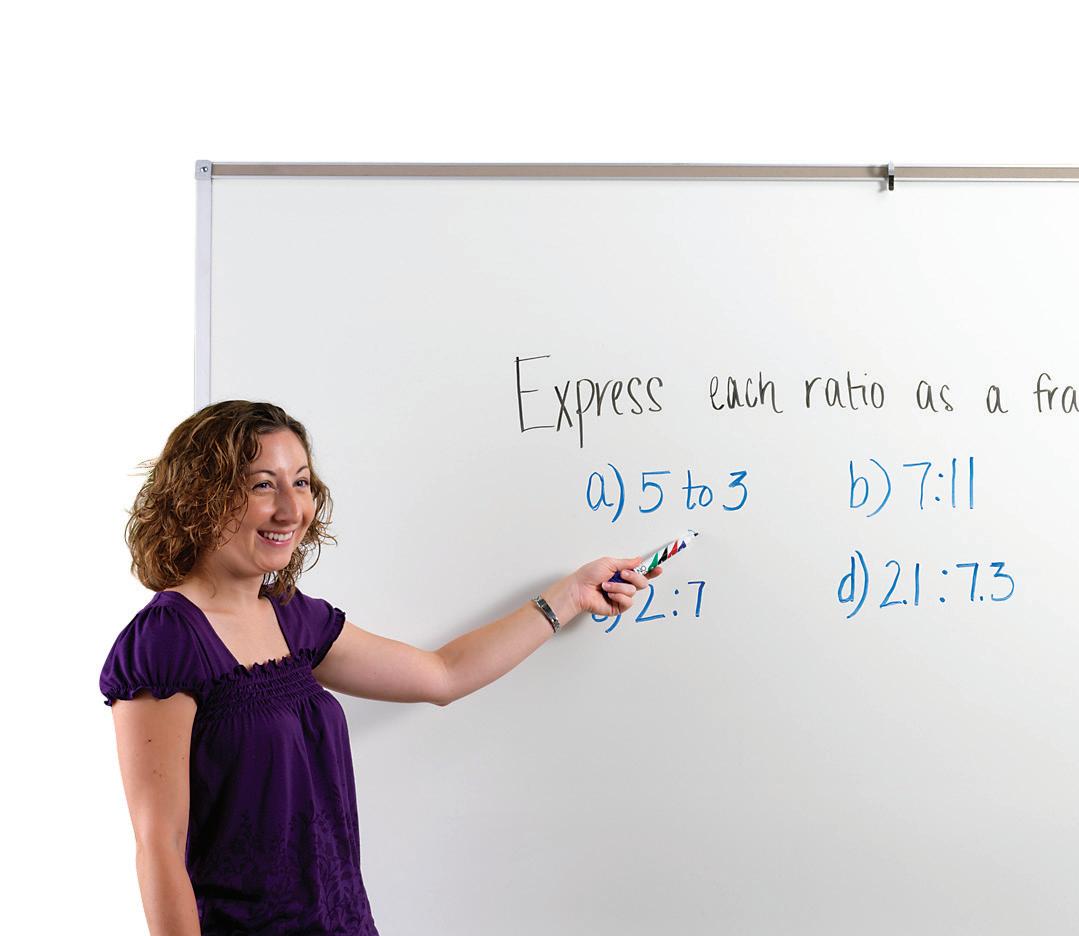 Express each ratio as a fra
a) 5 to 3 b) 7:11
c) 2:7 d) 2.1 : 7.3